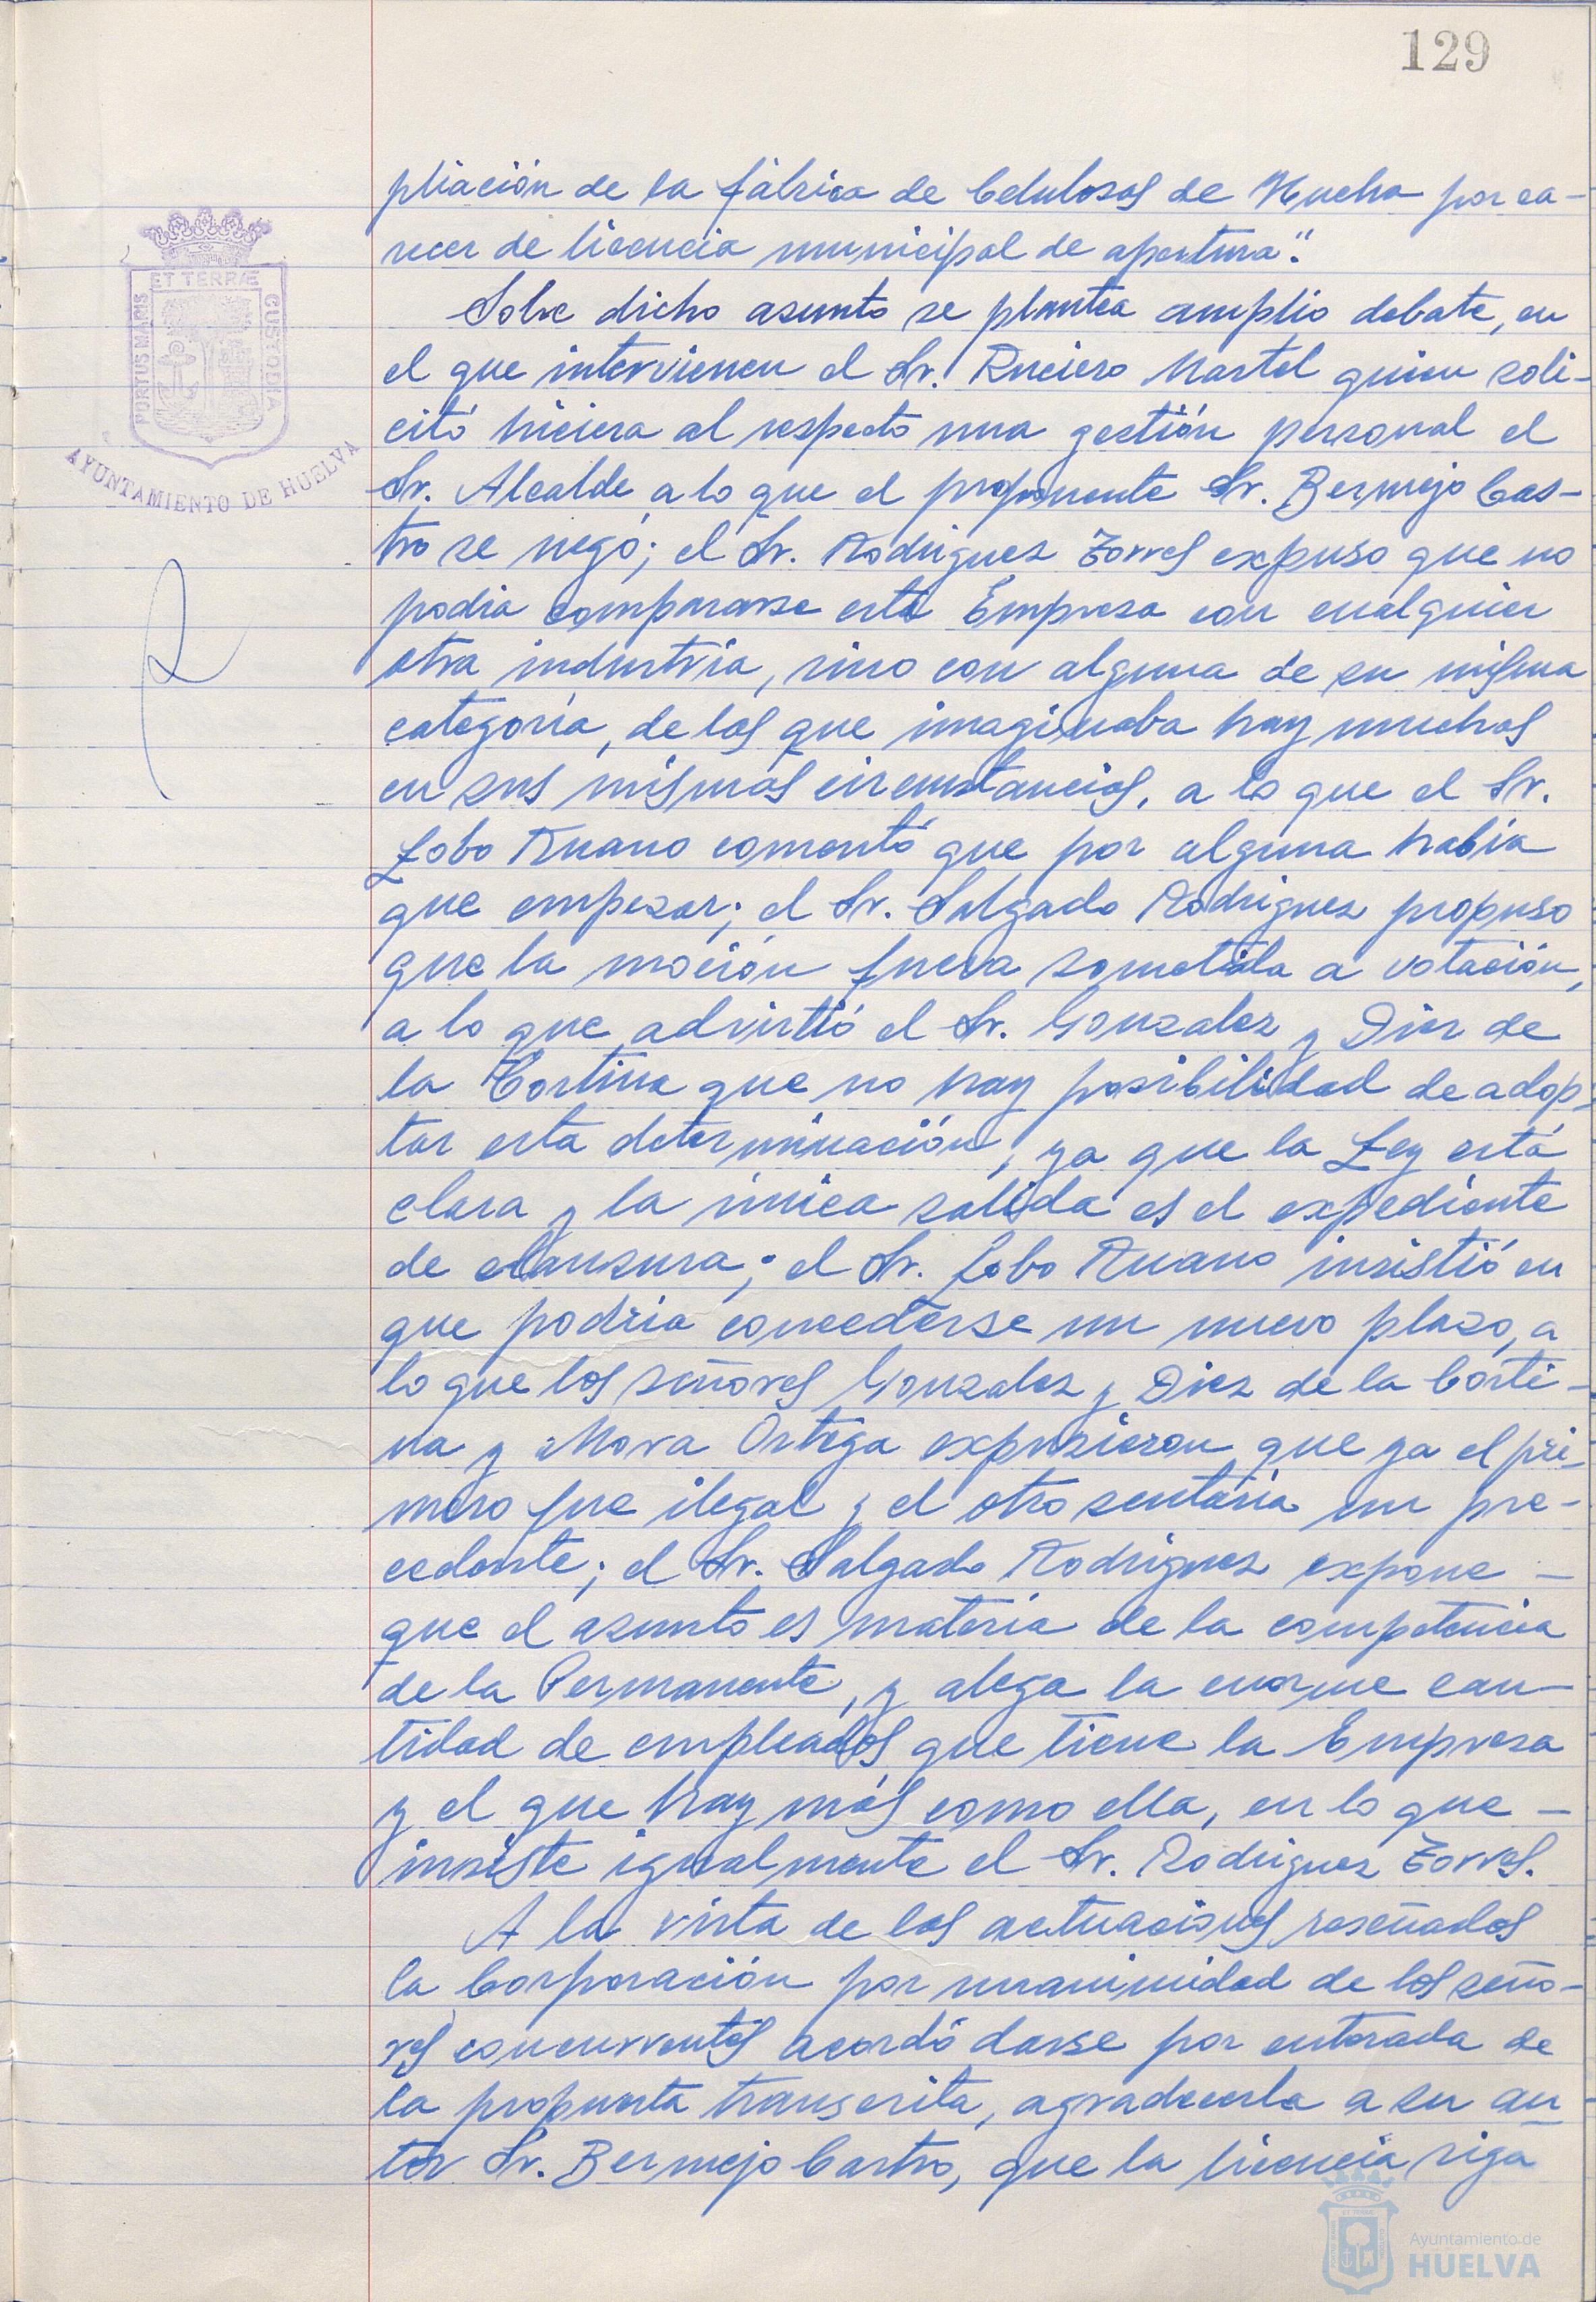 129
pliación de la fábrica de Celulosas de Huelva por ca-
recer de licencia municipal de apertura".
Sobre dicho asunto se plantea amplio debate, en
el que intervienen el Sr. Ruciero Martel quien soli-
citó hiciera al respecto una gestión personal el
Sr. Alcalde, a lo que el proponente Sr. Bermejo Cas-
tro se negó; el Sr. Rodriguez Torres expuso que no
podia compararse esta Empresa con cualquier
otra industria, sino con alguna de su misma
categoria, de las que imaginaba hay muchas
en sus mismas circunstancias, a lo que el Sr.
Lobo Ruano comentó que por alguna había
que empezar; el Sr. Salgado Rodriguez propuso
que la moción fuera sometida a votación,
a lo que advirtió el Sr. Gonzalez y Diez de
la Cortina que no hay posibilidad de adop-
tar esta determinación, ya que la Ley está
clara y la única salida es el expediente
de clausura; el Sr. Lobo Ruano insistió en
que podria concederse un nuevo plazo, a
lo que los señores Gonzalez y Diez de la Corti-
na y Mora Ortega expusieron que ya el pri-
mero fue ilegal y el otro sentaria un pre-
cedente; el Sr. Salgado Rodriguez expone -
que el asunto es materia de la competencia
de la Permanente, y alega la enorme can-
tidad de empleados que tiene la Empresa
y el que hay más como ella, en lo que -
insiste igualmente el Sr. Rodriguez Torres.
A la vista de las actuaciones reseñadas
la Corporación por unanimidad de los seño-
res concurrentes acordó darse por enterada de
la propuesta transcrita, agradecerla a su au-
tor Sr. Bermejo Castro, que la licencia siga
PORTUS MARIS
ET TERRÆ
CUSTODIA
AYUNTAMIENTO DE HUELVA
Ayuntamiento de
HUELVA